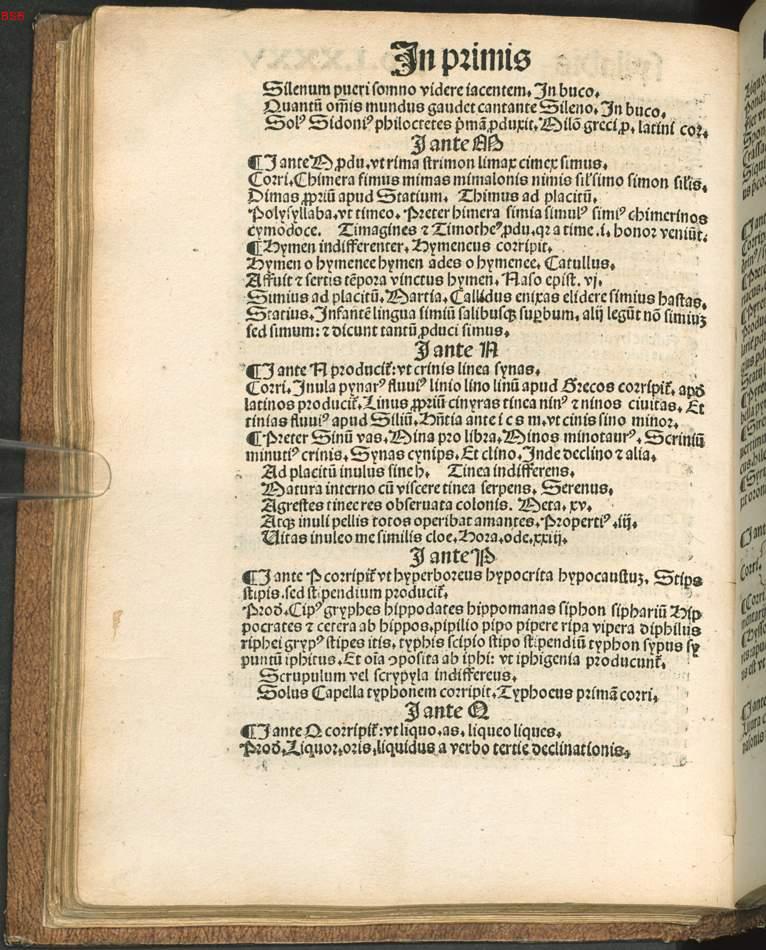 BSB
In primis
Silenum pueri somno videre iacentem. In buco.
Quantũ om̃is mundus gaudet cantante Sileno. In buco.
Solꝰ Sidoniꝰ philoctetes p̃mã ꝓduxit. Milõ greci ꝓ. latini cor.
I ante M
¶ I ante M ꝓdu. vt rima strimon limax cimex simus.
Corri. Chimera fimus mimas mimalonis nimis silsimo simon silis.
Dimas ꝓpriũ apud Statium. Thimus ad placitũ.
Polysyllaba. vt timeo. Preter himera simia simulꝰ simiꝰ chimerinos
cymodoce. Timagines ⁊ Timotheꝰ ꝓdu. qr a time .i. honor veniũt.
¶ Hymen indifferenter. Hymeneus corripit.
Hymen o hymenee hymen ades o hymenee. Catullus.
Affuit ⁊ sertis tẽpora vinctus hymen. Naso epist. vj.
Simius ad placitũ. Martia. Callidus enixas elidere simius hastas.
Statius. Infantẽ lingua simiũ salibusqꝫ suꝑbum. alij legũt nõ simiuꝫ
sed simum: ⁊ dicunt tantũ ꝓduci simus.
I ante N
¶ I ante N producit̃: vt crinis linea synas.
Corri. Inula pynarꝰ fluuiꝰ linio lino linũ apud Grecos corripit̃. apđ
latinos producit̃. Linus ꝓpriũ cinyras tinea ninꝰ ⁊ ninos ciuitas. Et
tinias fluuiꝰ apud Siliũ. Hñtia ante i c s m. vt cinis sino minor.
¶ Preter Sinũ vas. Mina pro libra. Minos minotaurꝰ. Scriniũ
minutiꝰ crinis. Synas cynips. Et clino. Inde declino ⁊ alia.
Ad placitũ inulus sine h. Tinea indifferens.
Natura interno cũ viscere tinea serpens. Serenus.
Agrestes tinee res obseruata colonis. Meta. xv.
Atqꝫ inuli pellis totos operibat amantes. Propertiꝰ .iij.
Uitas inuleo me similis cloe. Hora. ode. xxiij.
I ante P
¶ I ante P corripit̃ vt hyperboreus hypocrita hypocaustuꝫ. Stips
stipis. sed stipendium producit̃.
Prođ. Cipꝰ gryphes hippodates hippomanas siphon siphariũ Hip
pocrates ⁊ cetera ab hippos. pipilio pipo pipere ripa vipera diphilus
riphei grypꝰ stipes itis. typhis scipio stipo stipendiũ typhon sypus sy
puntũ iphitus. Et oĩa ꝯposita ab iphi: vt iphigenia producunt̃.
Scrupulum vel scrypyla indiffereus.
Solus Capella typhonem corripit. Typhoeus primã corri.
I ante Q
¶ I ante Q corripit̃: vt liquo. as. liqueo liques.
Prođ. Liquor. oris. liquidus a verbo tertie declinationis.